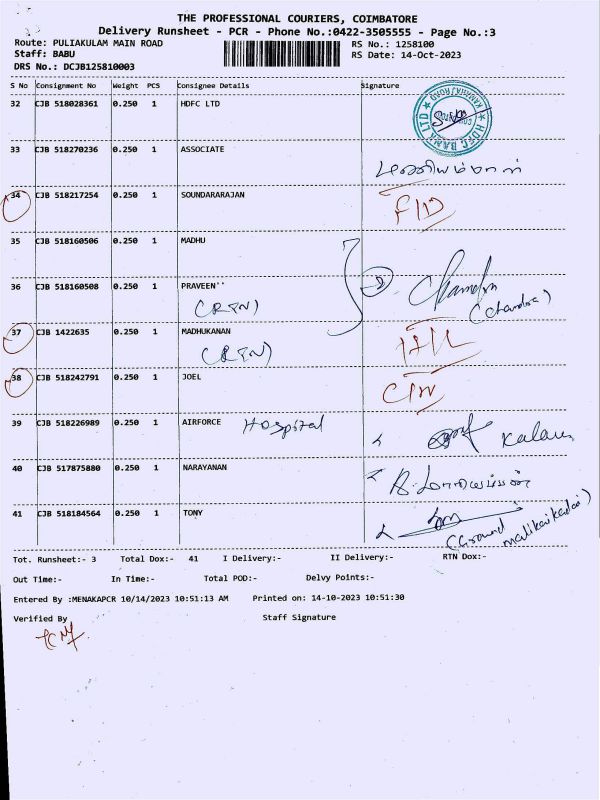 THE PROFESSIONAL COURIERS, COIMBATORE
Delivery Runsheet - PCR - Phone No.:0422-3505555 - Page No.:3
Route: PULIAKULAM MAIN ROAD RS No.: 1258100
Staff: BABU RS Date: 14-Oct-2023
DRS No.: DCJB125810003
S No Consignment No Weight PCS Consignee Details Signature
32 CJB 518028361 0.250 1 HDFC LTD
HDFC BANK LTD
33 CJB 518270236 0.250 1 ASSOCIATE
34 CJB 518217254 0.250 1 SOUNDARARAJAN
35 CJB 518160506 0.250 1 MADHU
36 CJB 518160508 0.250 1 PRAVEEN'' Chandra
(Chandra)
37 CJB 1422635 0.250 1 MADHUKANAN
38 CJB 518242791 0.250 1 JOEL
39 CJB 518226989 0.250 1 AIRFORCE Hospital
40 CJB 517875880 0.250 1 NARAYANAN
41 CJB 518184564 0.250 1 TONY
(Ground
Tot. Runsheet:- 3 Total Dox:- 41 I Delivery:- II Delivery:- RTN Dox:-
Out Time:- In Time:- Total POD:- Delvy Points:-
Entered By :MENAKAPCR 10/14/2023 10:51:13 AM Printed on: 14-10-2023 10:51:30
Verified By Staff Signature